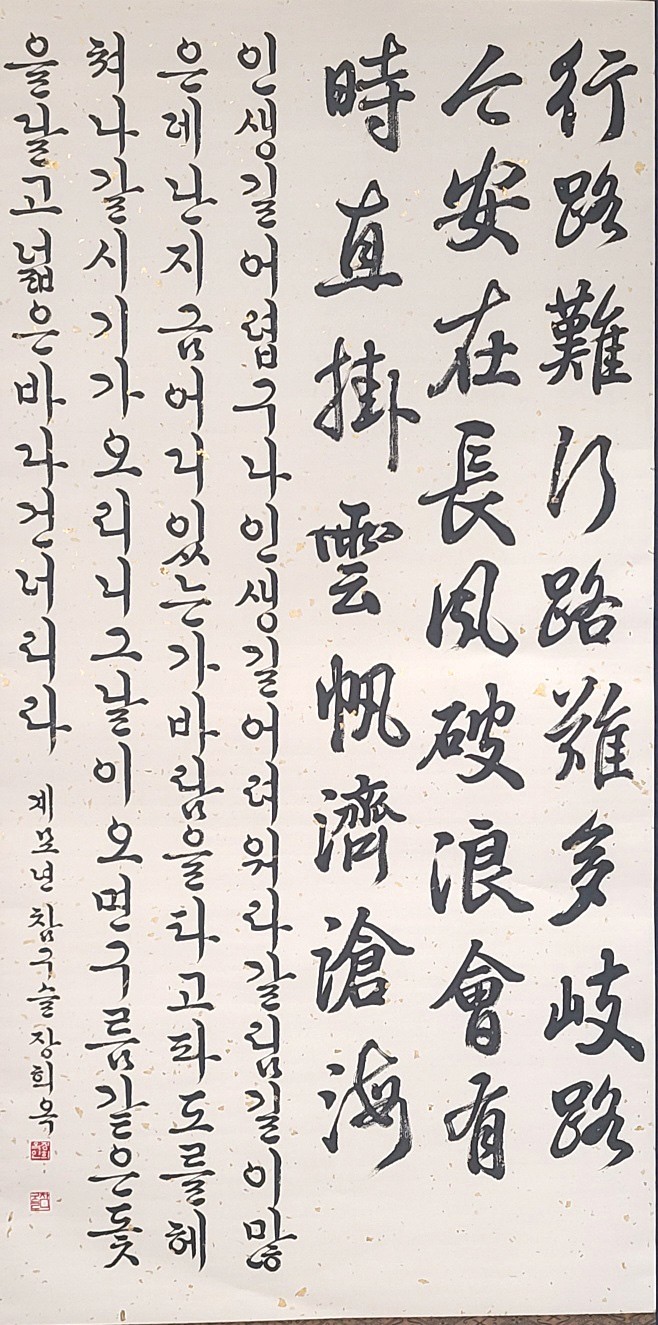 行路難行路難多岐路
今安在長風破浪會有
時直掛雲帆濟滄海
인생길어렵구나인생길어려워라갈림길이많
은데난지금어디있는가바람을타고파도를헤
쳐나갈시기가오리니그날이오면구름같은돛
을달고넓은바다건너리라
계묘년 참구슬 장희옥